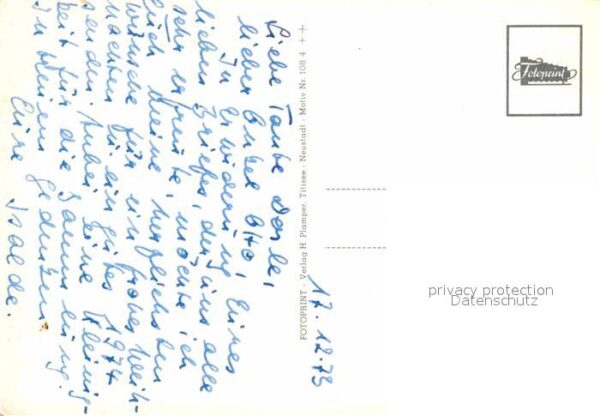 17.12.73
Liebe Tante Dorle,
lieber Onkel Otto,
In Erwiderung Eures
lieben Briefes, der uns alle
sehr erfreute, möchte ich
Euch meine herzlichsten
Wünsche für ein frohes Weih-
nachten und für ein gutes 1974
senden. Anbei eine Kleinig-
keit für die Sammlung.
In treuem Gedenken
Eure Isolde.
FOTOPRINT - Verlag H. Plamper, Titisee - Neustadt - Motiv Nr. 108 4 ++
Fotoprint
privacy protection
Datenschutz